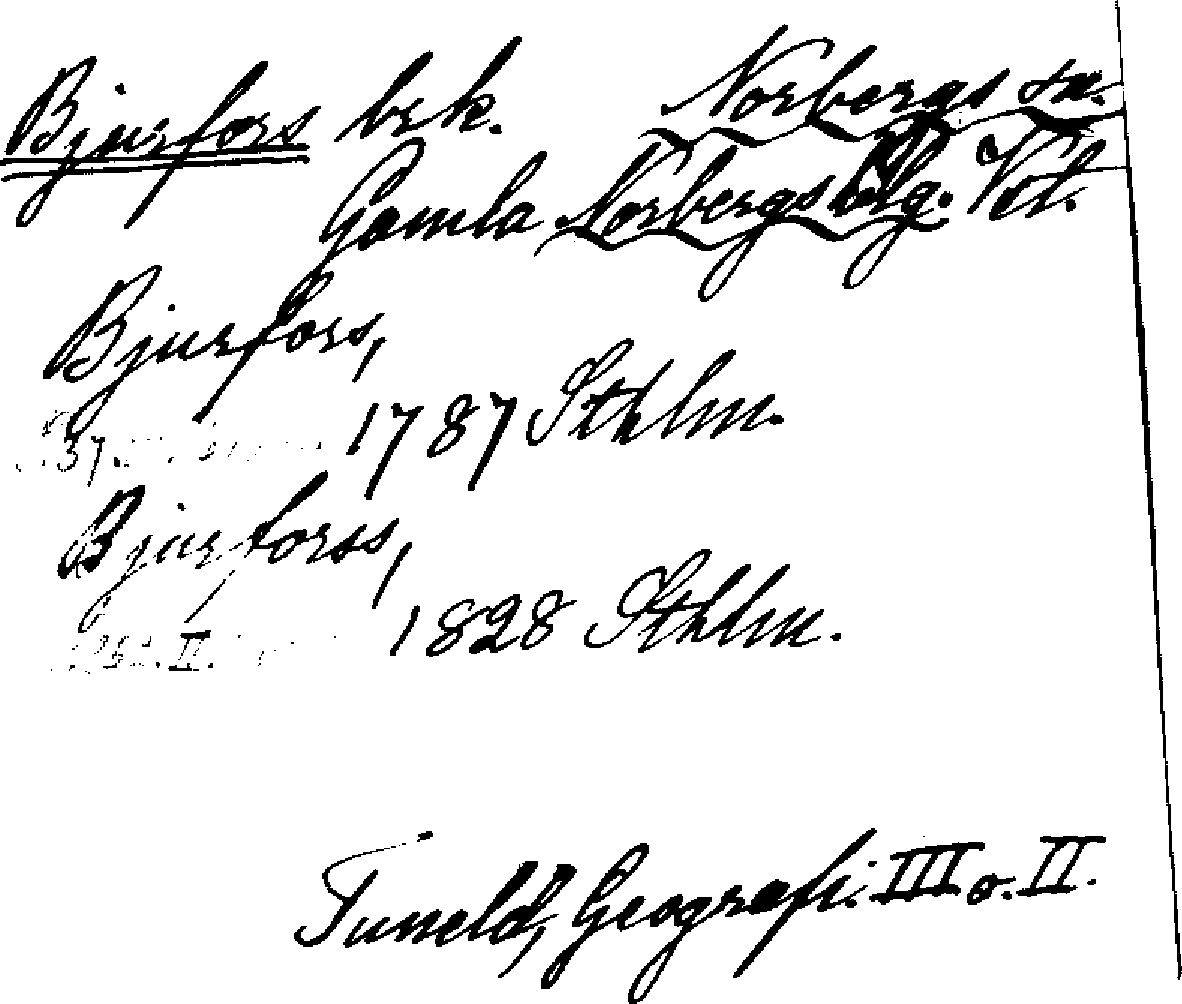 Bjurfors brk. Norbergs sn.
Gamla Norbergs blg. Vstl.
Bjurfors,
1787 Sthlm.
Bjurforss,
II.
1828 Sthlm.
Tuneld, Geografi. III o. II.